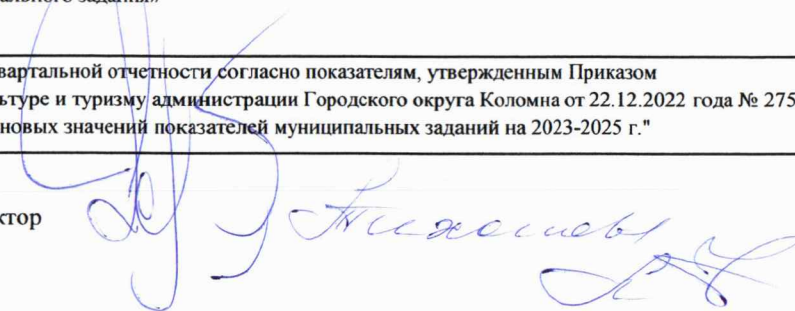 ального задания»
вартальной отчетности согласно показателям, утвержденным Приказом
ьтуре и туризму администрации Городского округа Коломна от 22.12.2022 года № 275
новых значений показателей муниципальных заданий на 2023-2025 г."
ктор